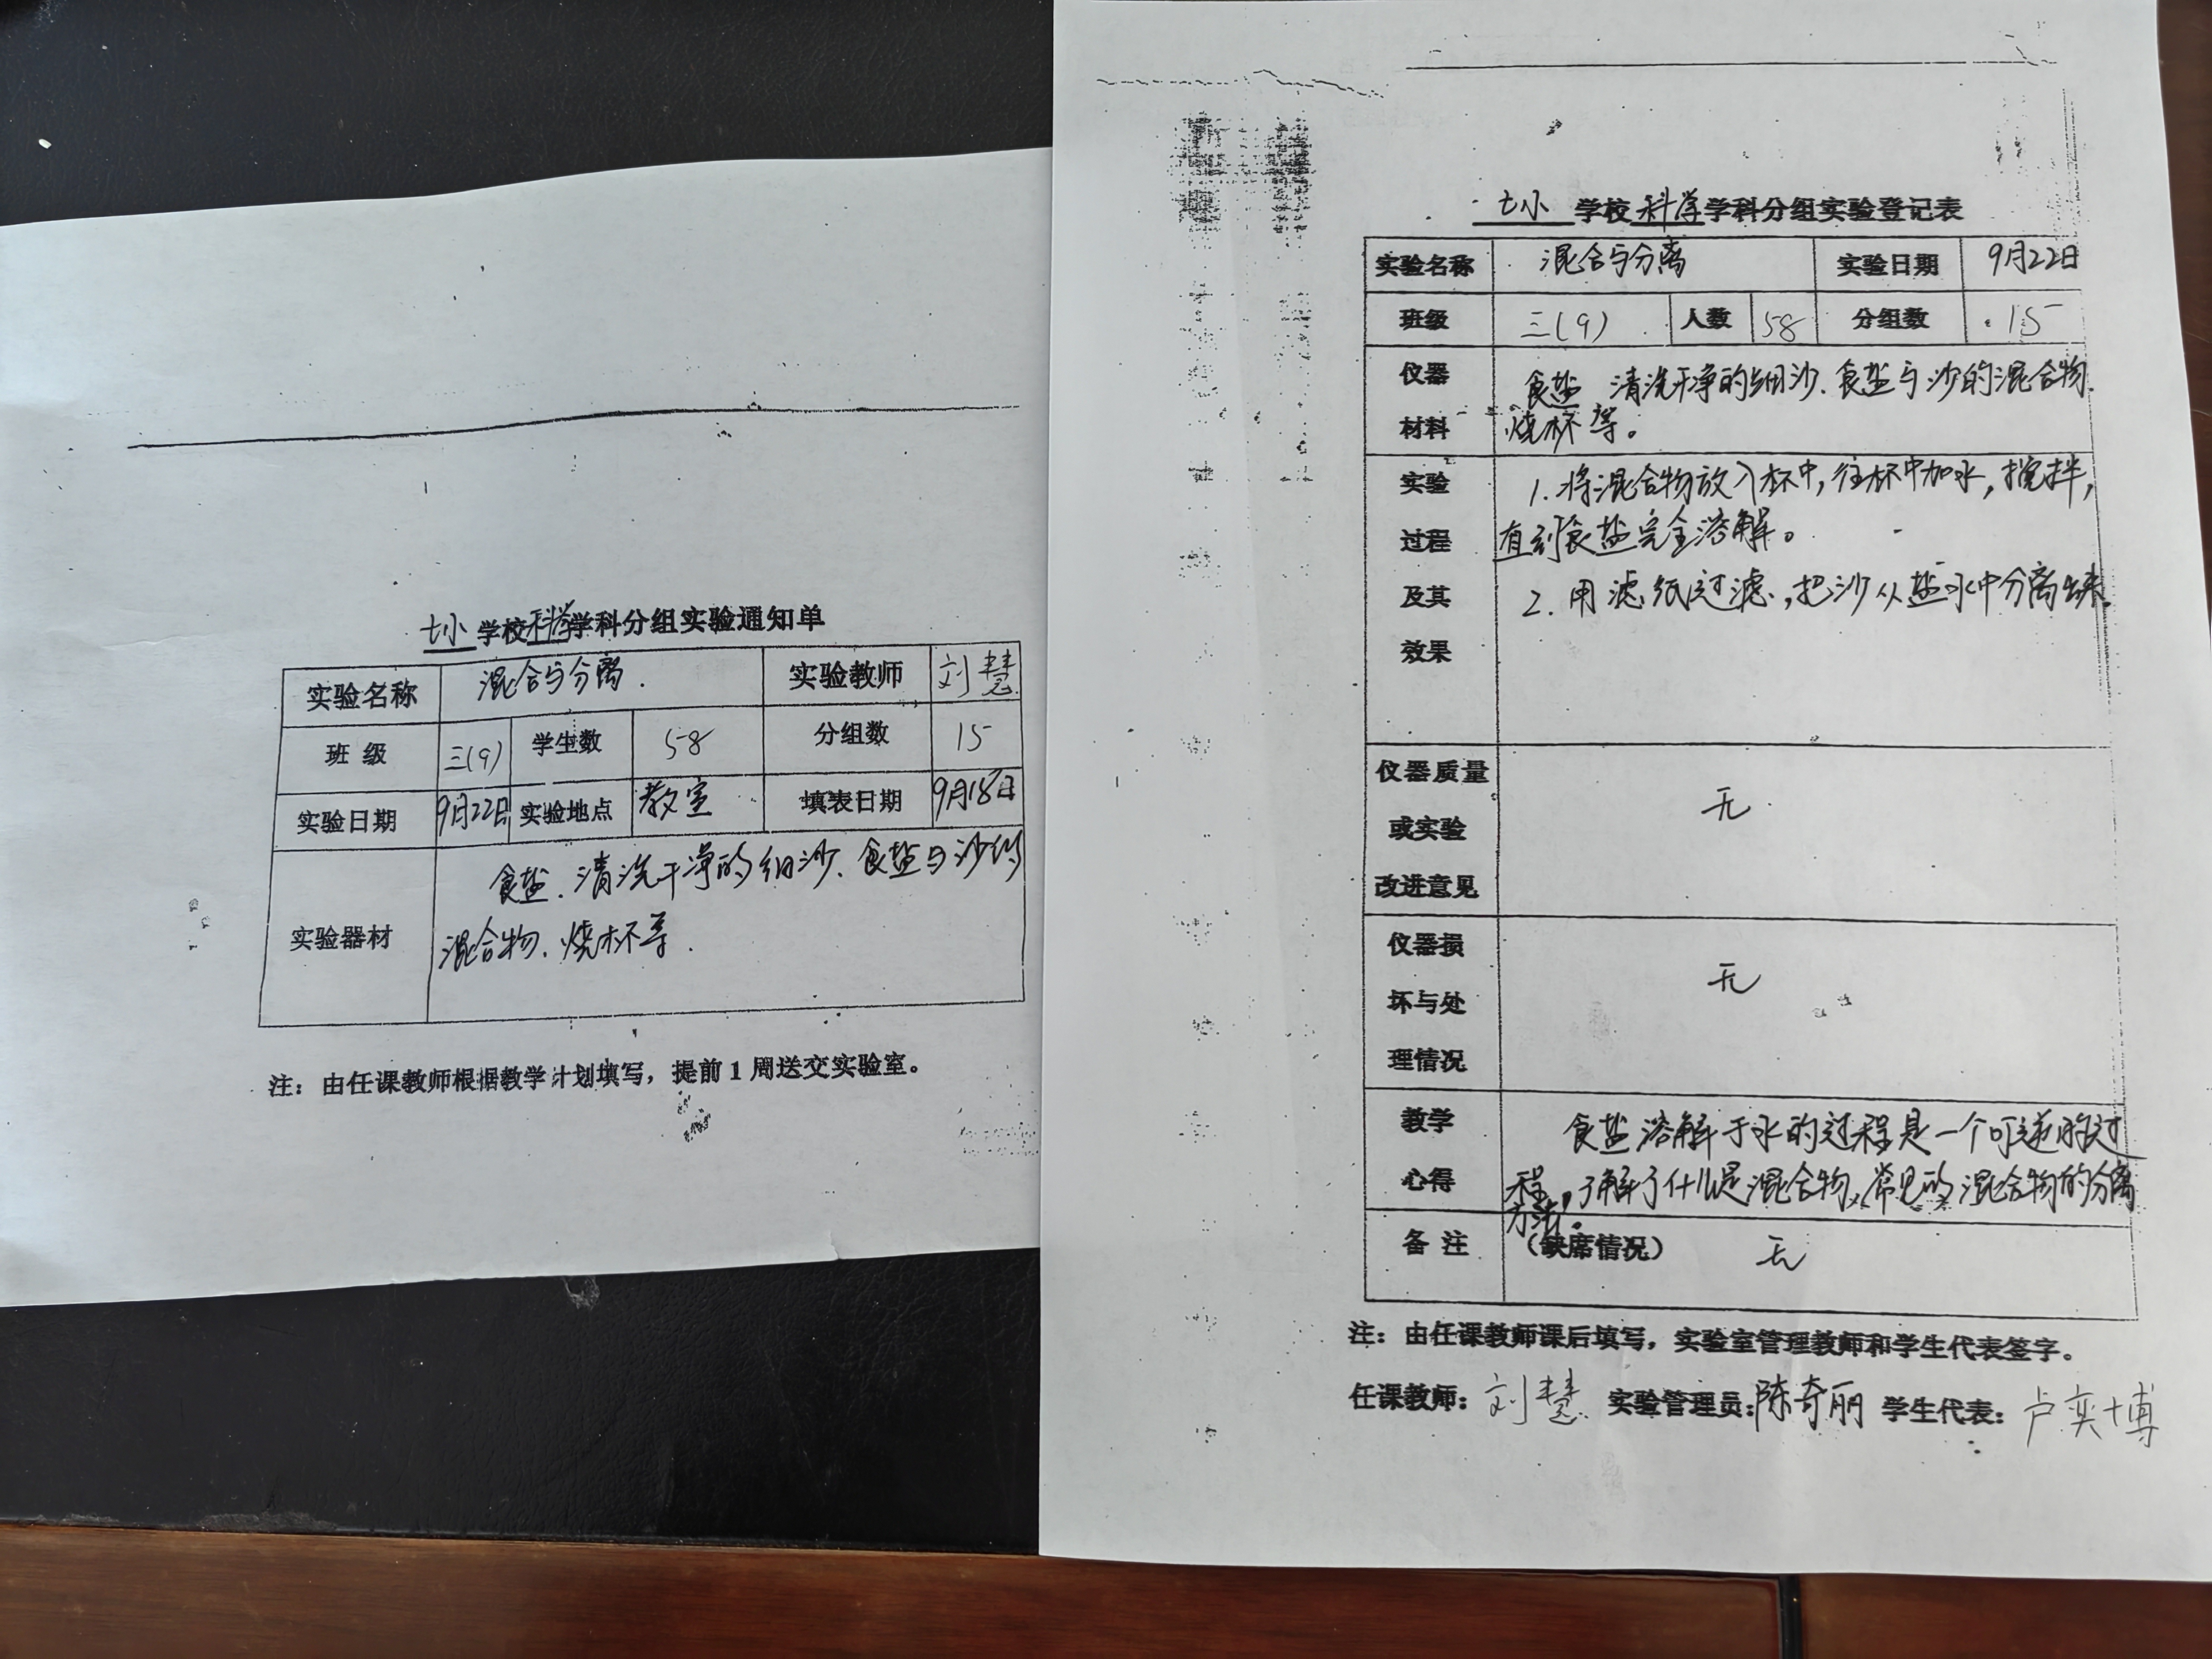 七小 学校 科学 学科分组实验通知单
实验名称 混合与分离. 实验教师 刘慧
班 级 三(9) 学生数 58 分组数 15
实验日期 9月22日 实验地点 教室 填表日期 9月18日
实验器材 食盐、清洗干净的细沙、食盐与沙的
混合物、烧杯等.
注：由任课教师根据教学计划填写，提前1周送交实验室。
七小 学校 科学 学科分组实验登记表
实验名称 混合与分离 实验日期 9月22日
班级 三(9) 人数 58 分组数 15
仪器 食盐 清洗干净的细沙、食盐与沙的混合物、
材料 烧杯等。
实验 1.将混合物放入杯中，往杯中加水，搅拌，
过程 直到食盐完全溶解。
及其 2.用滤纸过滤，把沙从盐水中分离出来。
效果
仪器质量
或实验 无.
改进意见
仪器损
坏与处 无
理情况
教学 食盐溶解于水的过程是一个可逆的过
心得 程，了解了什么是混合物、常见的混合物的分离
方法。
备 注 （缺席情况） 无
注：由任课教师课后填写，实验室管理教师和学生代表签字。
任课教师：刘慧 实验管理员：陈奇丽 学生代表：卢奕博